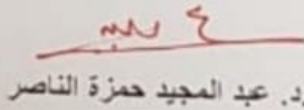 د. عبد المجيد حمزة الناصر